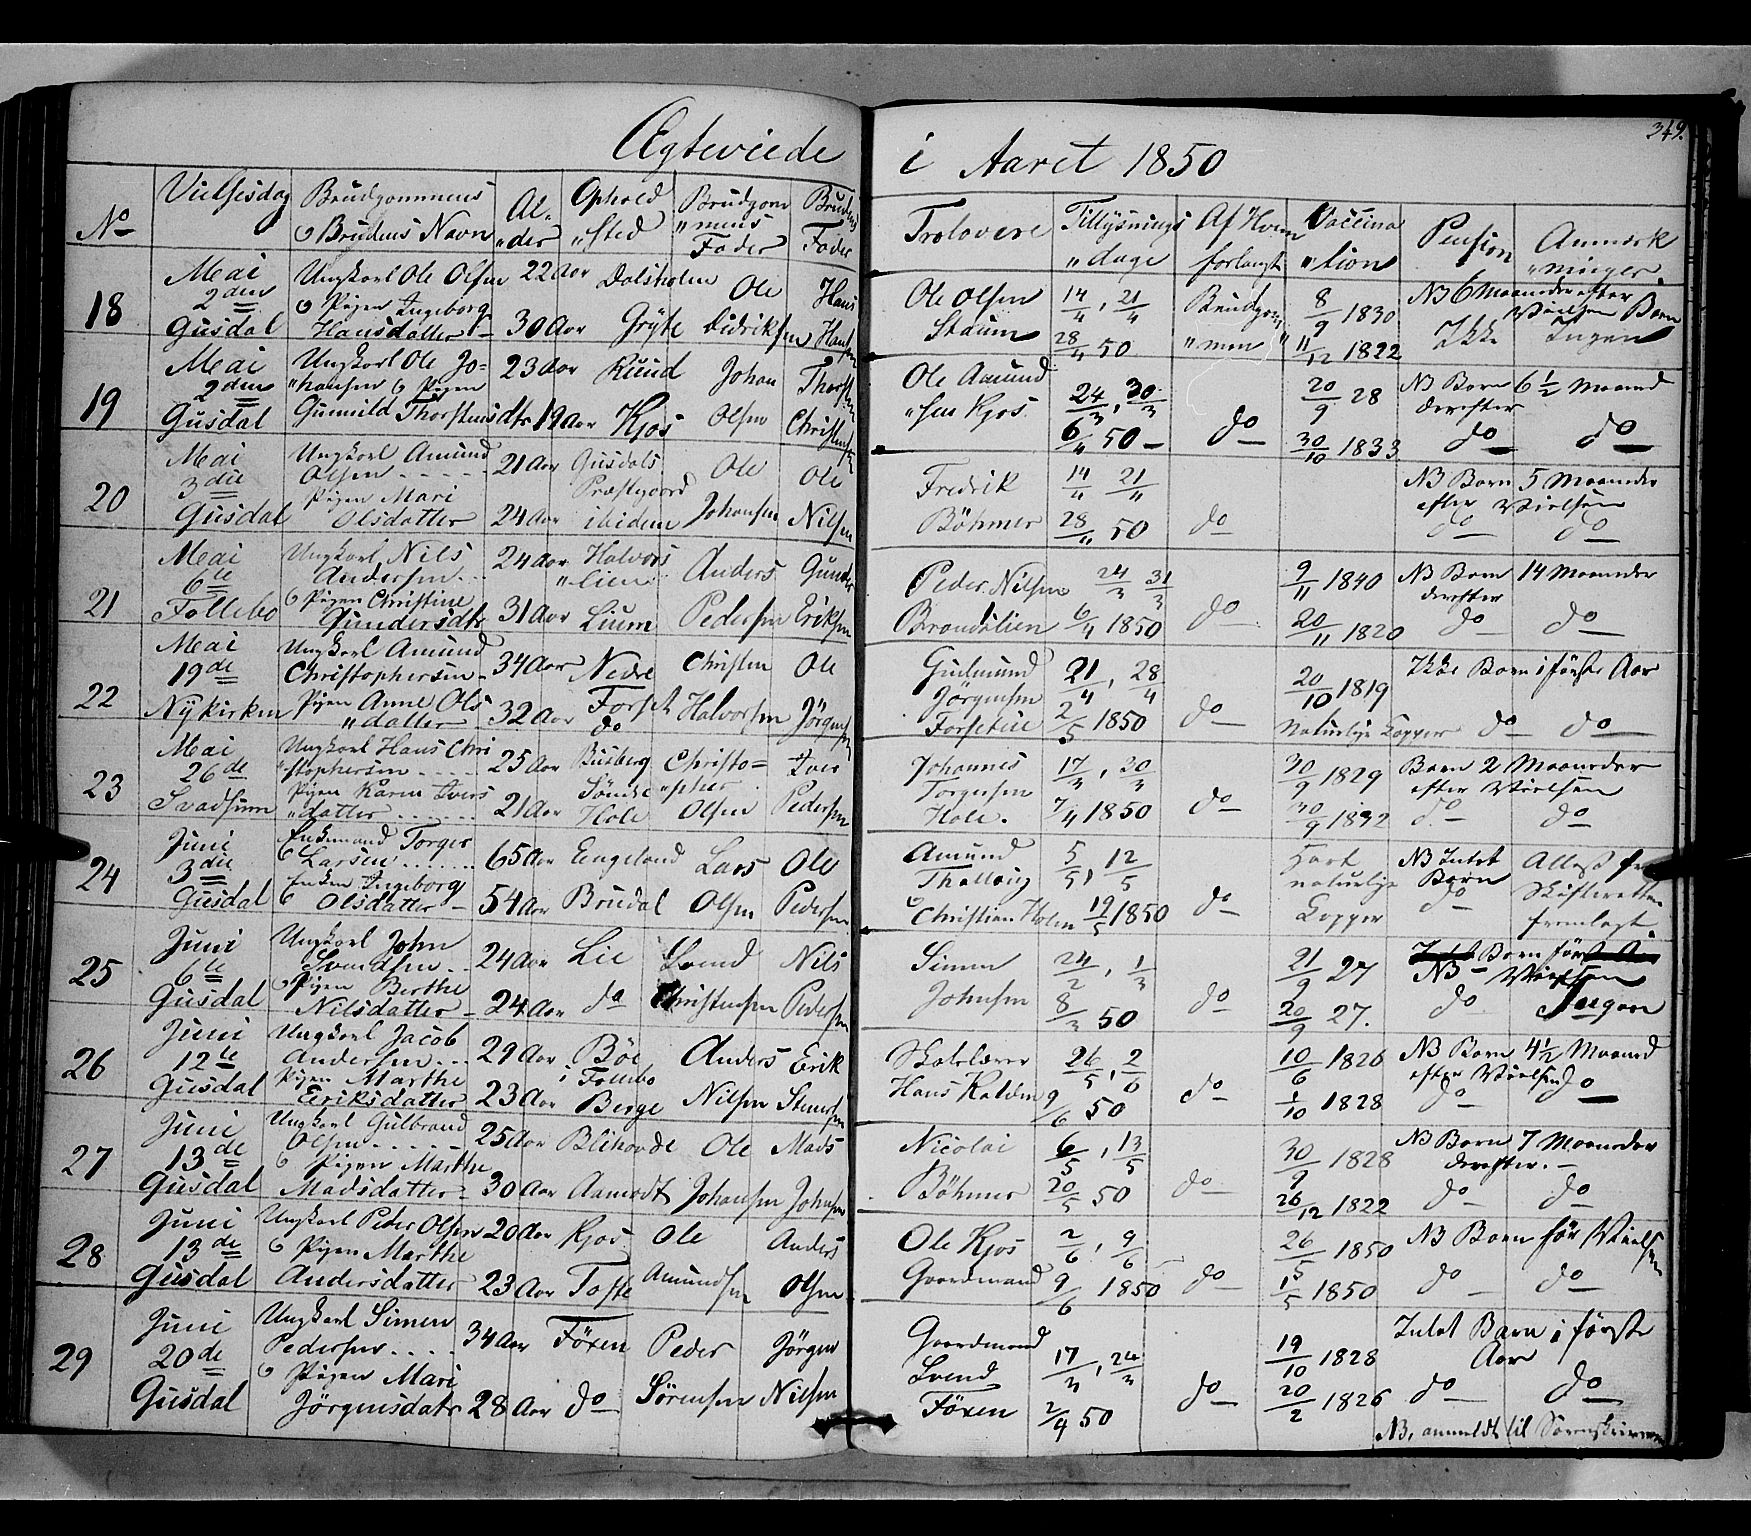 Ægteviede i Aaret 1850
349.
No Vielsesdag Brudgommens & Brudens Navn Al-der Ophold sted Brudgom mens Fader Brudens Fader Trolovere Tillysnings dage Af Hvem forlangt Vaccina tion Pension Anmærk ninger
18 Mai 2den Gusdal
Ungkarl Ole Olsen 22 Aar Dalsholen Ole
& Pigen Ingeborg Hans
Hansdatter 30 Aar Gryte Didriksen Hansen
Ole Olsen 14/4, 21/4 Brudgom 8/9 1830 NB 6 Maaneder efter Vielsen Barn
Staum 28/4 50 men 11/12 1822 Ikke Ingen
19 Mai 2den Gusdal
Ungkarl Ole Jo= 23 Aar Ruud Johan Thorsten
hansen & Pigen
Gunnild Thorstensdtr 19 Aar Kjos Olsen Christensen
Ole Amund 24/3, 30/3 20/9 28 NB Barn 6 1/2 Maaned derefter
sen Kjos 6/4 50 do 30/10 1833 do do
20 Mai 3die Gusdal
Ungkarl Amund Olsen 21 Aar Gusdals Præstgaard Ole Ole
Pigen Mari Olsdatter 24 Aar ibidem Johansen Nilsen
Fredrik 14/4 21/4 NB Barn 5 Maaneder efter Vielsen
Böhmer 28/4 50 do do do
21 Mai 6te Follebo
Ungkarl Nils Andersen 24 Aar Halvors lien Anders Gunder
& Pigen Christine Gundersdtr 31 Aar Lium Pedersen Eriksen
Peder Nilsen 24/3 31/3 9/11 1840 NB Barn 14 Maaneder derefter
Brandslien 6/4 1850 do 20/11 1820 do do
22 Mai 19de Nykirken
Ungkarl Amund Christophersen 34 Aar Nedre Forset Christen Ole
Pigen Anne Ols datter 32 Aar do Halvorsen Jörgensen
Gulmund 21/4, 28/4 20/10 1819 Ikke Barn i første Aar
Jörgensen
Forsetlie 2/5 1850 do Naturlige Kopper do do
23 Mai 26de Svadsum
Ungkarl Hans Chri stophersen 25 Aar Busberg Christo= pher Iver
Pigen Karen Ivers datter 21 Aar Söndre Hole Olsen Pedersen
Johannes 17/3, 30/3 30/9 1829 Barn 2 Maaneder efter Vielsen
Torgersen
Hole. 7/4 1850 do 30/9 1832 do do
24 Juni 3die Gusdal
Enkemand Torger Larsen 65 Aar Engeland Lars Ole
& Enken Ingeborg Olsdatter 54 Aar Brudal Olsen Pedersen
Amund 5/5, 12/5 Havt NB Intet Barn Attest fra
Thallaug naturlige Skifteretten
& Christian Holen 19/5 1850 do Kopper do fremlagt.
25 Juni 6te Gusdal
Ungkarl John Svendsen 24 Aar Lie Svend Nils
& Pigen Berthe Nilsdatter 24 Aar do Christensen Pedersen
Simen 24/2, 1/3 21/9 27 Intet Barn først Aar
NB Vielsen
Johnsen 8/3 50 do 20/9 27. do Ingen
26 Juni 12te Gusdal
Ungkarl Jacob Andersen 29 Aar Böe i Follebo Anders Erik
Pigen Marthe Eriksdatter 23 Aar Berge Nilsen Stenersen
Skolelærer 26/5, 2/6 10/6 1826 NB Barn 4 1/2 Maaned efter Vielsen
Hans Kalden 9/6 50 do 1/10 1828 do do
27 Juni 13de Gusdal
Ungkarl Gulbrand Olsen 25 Aar Blihovde Ole Mads
& Pigen Marthe Madsdatter 30 Aar Aamodt Johansen Johnsen
Nicolai 6/5, 13/5 30/9 1828 NB Barn 7 Maaneder derefter.
Böhmer 20/5 50 do 26/12 1822 do do
28 Juni 13de Gusdal
Ungkarl Peder Olsen 20 Aar Kjos Ole Anders
& Pigen Marthe Andersdatter 23 Aar Tofte Amundsen Olsen
Ole Kjos 2/6, 9/6 26/5 1850 NB Barn før Vielsen
Gaardmand 9/6 1850 do 1/5 1850 do do
29 Juni 20de Gusdal
Ungkarl Simen Pedersen 34 Aar Föxen Peder Jörgen
& Pigen Mari Jörgensdatr 28 Aar do Sörensen Nilsen
Gaardmand 17/3, 24/3 19/10 1828 Intet Barn i første Aar
Svend
Föxen 2/4 50 do 20/2 1826 do do
NB, anmeldt til Sorenskriveren